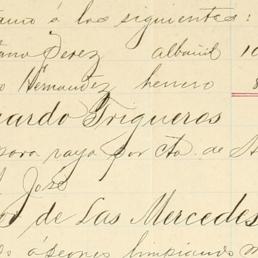 á los siguientes:
Perez albañil 10
Hernandez herrero
uardo Trigueros
para raya por cta. de
José
de Las Mercedes
limpiando